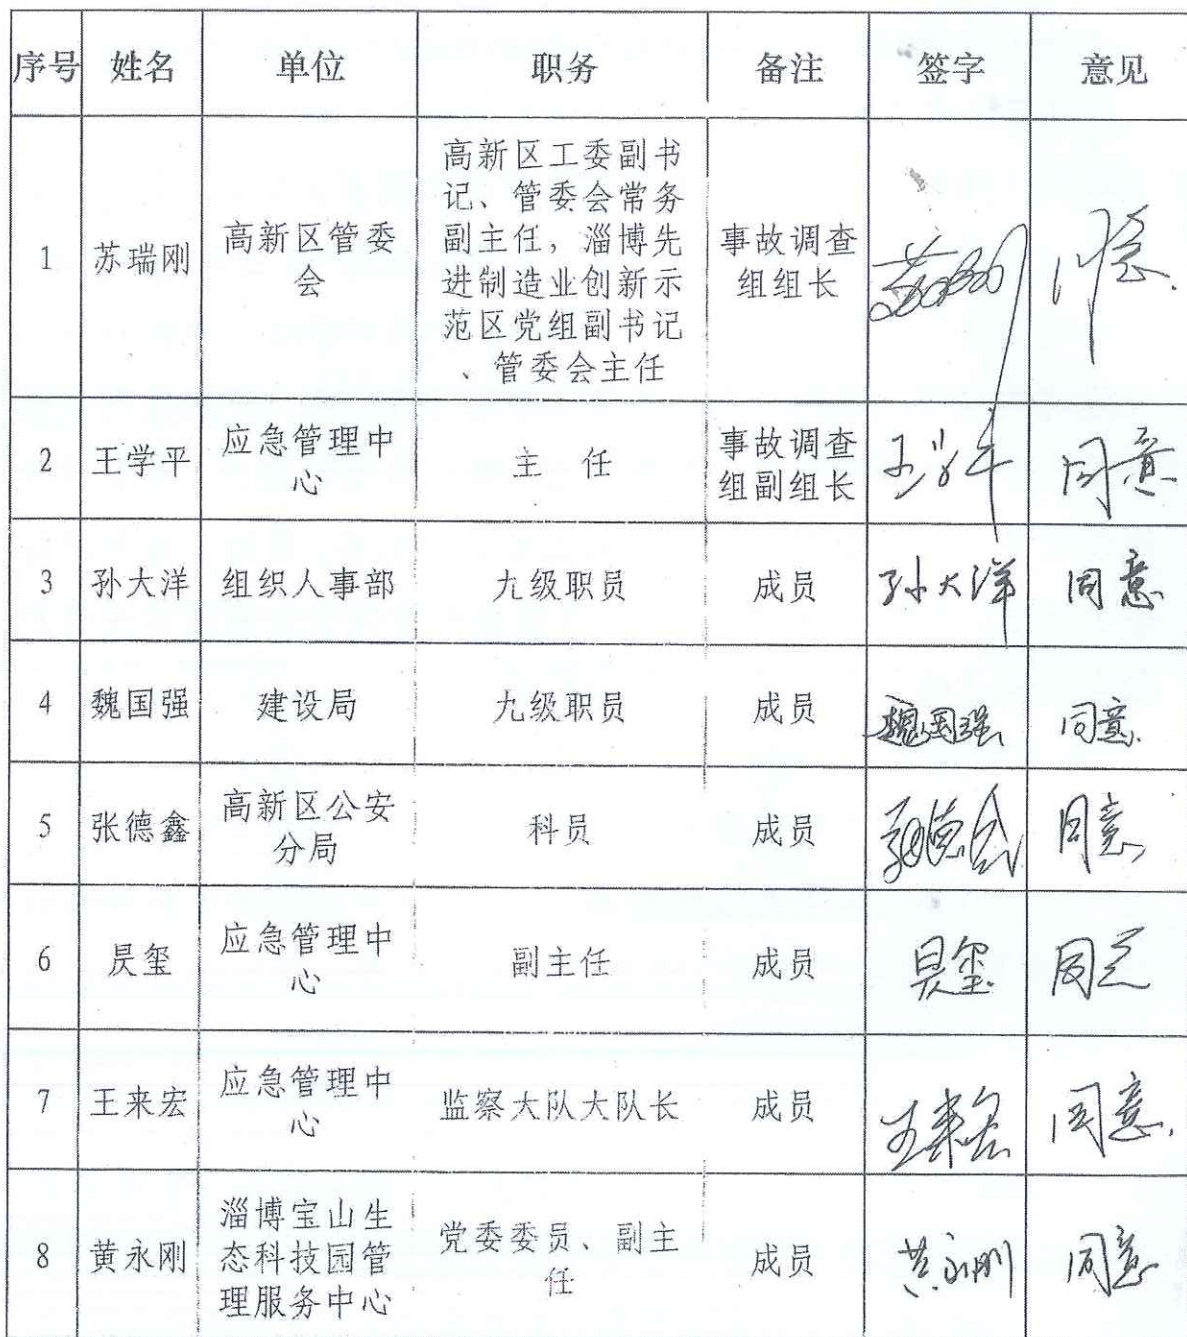 序号 姓名 单位 职务 备注 签字 意见
高新区工委副书
记、管委会常务
副主任，淄博先
进制造业创新示
范区党组副书记
、管委会主任
1 苏瑞刚
高新区管委
会
事故调查
组组长
同意.
2 王学平
应急管理中
心
主 任
事故调查
组副组长
王学平 同意
3 孙大洋 组织人事部 九级职员 成员 孙大洋 同意
4 魏国强 建设局 九级职员 成员 魏国强 同意.
5 张德鑫
高新区公安
分局
科员 成员 张德鑫 同意
6 昃玺
应急管理中
心
副主任 成员 昃玺. 同意
7 王来宏
应急管理中
心
监察大队大队长 成员 王来宏 同意.
8 黄永刚
淄博宝山生
态科技园管
理服务中心
党委委员、副主
任
成员 黄永刚 同意